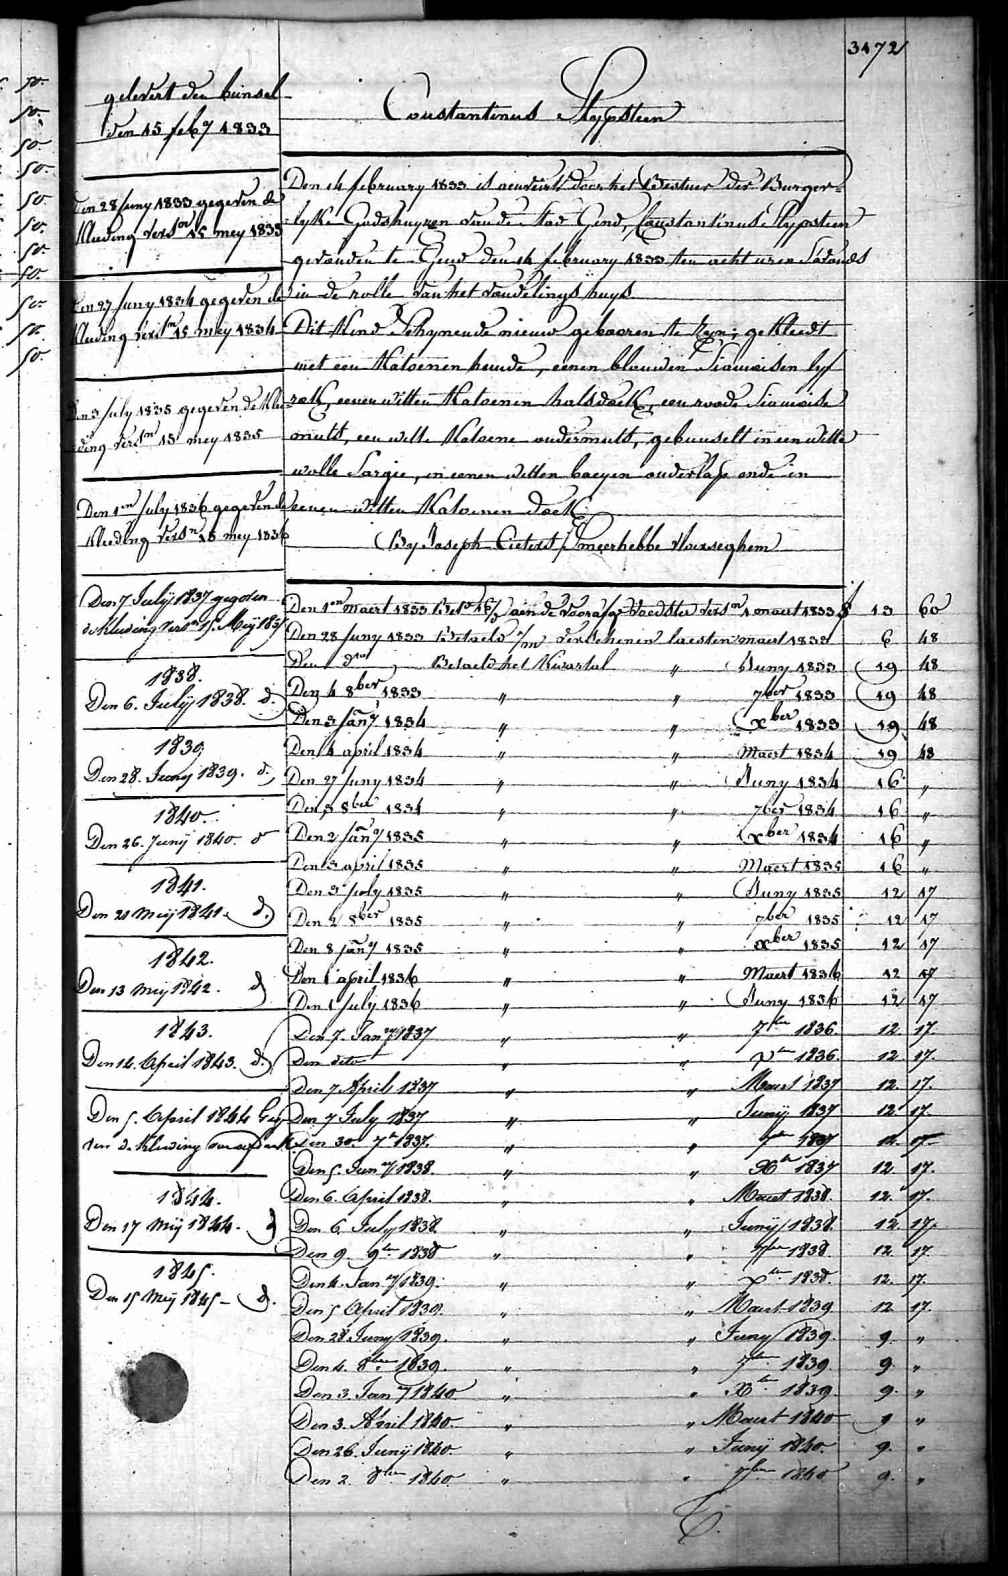 3472
Constantinus Slypsteen
gelevert den bunsel
den 15 feb.y 1833
Den 28 Juny 1833 gegeven de
kleeding vers.n 15 mey 1833
Den 27 Juny 1834 gegeven de
kleeding vers.n 15 mey 1834
Den 3 July 1835 gegeven de klee-
ding vers.n 15 mey 1835
Den 1en July 1836 gegeven de
kleeding vers.n 15 mey 1836
Den 7 Julij 1837 gegeven
de kleeding vers.n 15 Meij 1837
1838.
Den 6. Julij 1838. d.
1839
Den 28. Juny 1839. d.
1840.
Den 26. Junij 1840. d
1841.
Den 21 Meij 1841. d.
1842.
Den 13 Meij 1842. d
1843.
Den 14. April 1843. d.
Den 5. April 1844 Geg
ven de Kleeding
1844.
Den 17 Meij 1844. d
1845.
Den 15 Meij 1845 - d.
Den 14 february 1833 is aenveirt door het Bestuer der Burger-
lyke Godshuyzen van de stad Gend, Constantinus Slypsteen
gevonden te Gend den 14 february 1833 ten acht uren s'avonds
in de rolle van het vondelings huys
Dit kind schynende nieuw gebooren te zyn; gekleedt
met een katoenen hemde, eenen blauwen Siamoisen lyf
rok, eenen witten katoenen halsdoek, een roode Siamoise
muts, een witte katoene ondermuts, gebunselt in een witte
wolle Sargie, in eenen witten baeyen onderlap ende in
eenen witten katoenen doek
By Joseph Pieters Smeerhebbe Vloerseghem
Den 1en maert 1833 aen de voedster vers.n 1 maert 1833 f 13 60
Den 28 Juny 1833 Betaeld verschenen laesten maert 1833 6 48
Den dito Betaeld het Kwartal " Juny 1833 19 48
Den 4 8ber 1833 " " 7ber 1833 19 48
Den 3 Jan.y 1834 " " Xber 1833 19 48
Den 4 april 1834 " " Maert 1834 19 48
Den 27 Juny 1834 " " Juny 1834 16 "
Den 3 8ber 1834 " " 7ber 1834 16 "
Den 2 Jan.y 1835 " " Xber 1834 16 "
Den 3 april 1835 " " Maert 1835 16 "
Den 3 July 1835 " " Juny 1835 12 17
Den 2 8ber 1835 " " 7ber 1835 12 17
Den 8 Jan.y 1835 " " Xber 1835 12 17
Den 1 april 1836 " " Maert 1836 12 17
Den 1 July 1836 " " Juny 1836 12 17
Den 7. Jan.y 1837 " " 7ber 1836 12 17.
Den dito " " Xber 1836. 12 17.
Den 7 April 1837 " " Maert 1837 12. 17.
Den 7 July 1837 " " Junij 1837 12 17.
Den 30 7b 1837. " " 7ber 1837 12. 17.
Den 5. Jan.y 1838. " " Xber 1837 12. 17.
Den 6. April 1838. " " Maert 1838. 12. 17.
Den 6. July 1838 " " Junij 1838. 12. 17.
Den 9. 9ber 1838 " " 7ber 1838 12. 17.
Den 4. Jan.y 1839. " " Xber 1838. 12. 17.
Den 5 April 1839. " " Maert 1839 12 17.
Den 28. Juny 1839. " " Juny 1839 9. "
Den 4. 8ber 1839. " " 7ber 1839 9. "
Den 3. Jan.y 1840 " " Xber 1839 9. "
Den 3. April 1840. " " Maert 1840 9 "
Den 26. Junij 1840. " " Junij 1840 9. "
Den 2. 8ber 1840 " " 7ber 1840 9. "